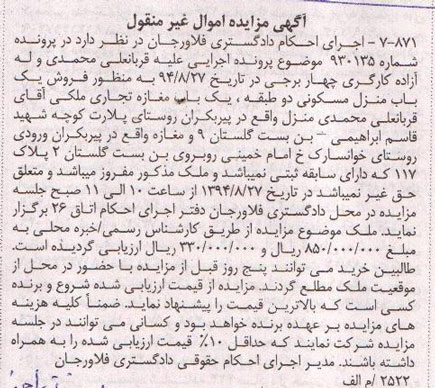 آگهی مزایده اموال غیر منقول
۷-۸۷۱- اجرای احکام دادگستری فلاورجان در نظر دارد در پرونده
شماره ۹۳۰۱۳۵ موضوع پرونده اجرایی علیه قربانعلی محمدی و له
آزاده کارگری چهار برجی در تاریخ ۹۴/۸/۲۷ به منظور فروش یک
باب منزل مسکونی دو طبقه ، یک باب مغازه تجاری ملکی آقای
قربانعلی محمدی منزل واقع در پیربکران روستای پلارت کوچه شهید
قاسم ابراهیمی – بن بست گلستان ۹ و مغازه واقع در پیربکران ورودی
روستای خوانسارک خ امام خمینی روبروی بن بست گلستان ۲ پلاک
۱۱۷ که دارای سابقه ثبتی نمیباشد و ملک مذکور مفروز میباشد و متعلق
حق غیر نمیباشد در تاریخ ۱۳۹۴/۸/۲۷ از ساعت ۱۰ الی ۱۱ صبح جلسه
مزایده در محل دادگستری فلاورجان دفتر اجرای احکام اتاق ۲۶ برگزار
نماید. ملک موضوع مزایده از طریق کارشناس رسمی/خبره محلی به
مبلغ ۸۵۰/۰۰۰/۰۰۰ ریال و ۳۳۰/۰۰۰/۰۰۰ ریال ارزیابی گردیده است.
طالبین خرید می توانند پنج روز قبل از مزایده با حضور در محل از
موقعیت ملک مطلع گردند. مزایده از قیمت ارزیابی شده شروع و برنده
کسی است که بالاترین قیمت را پیشنهاد نماید. ضمناً کلیه هزینه
های مزایده بر عهده برنده خواهد بود و کسانی می توانند در جلسه
مزایده شرکت نمایند که حداقل ۱۰٪ قیمت ارزیابی شده را به همراه
داشته باشند. مدیر اجرای احکام حقوقی دادگستری فلاورجان
۲۵۲۲ /م الف